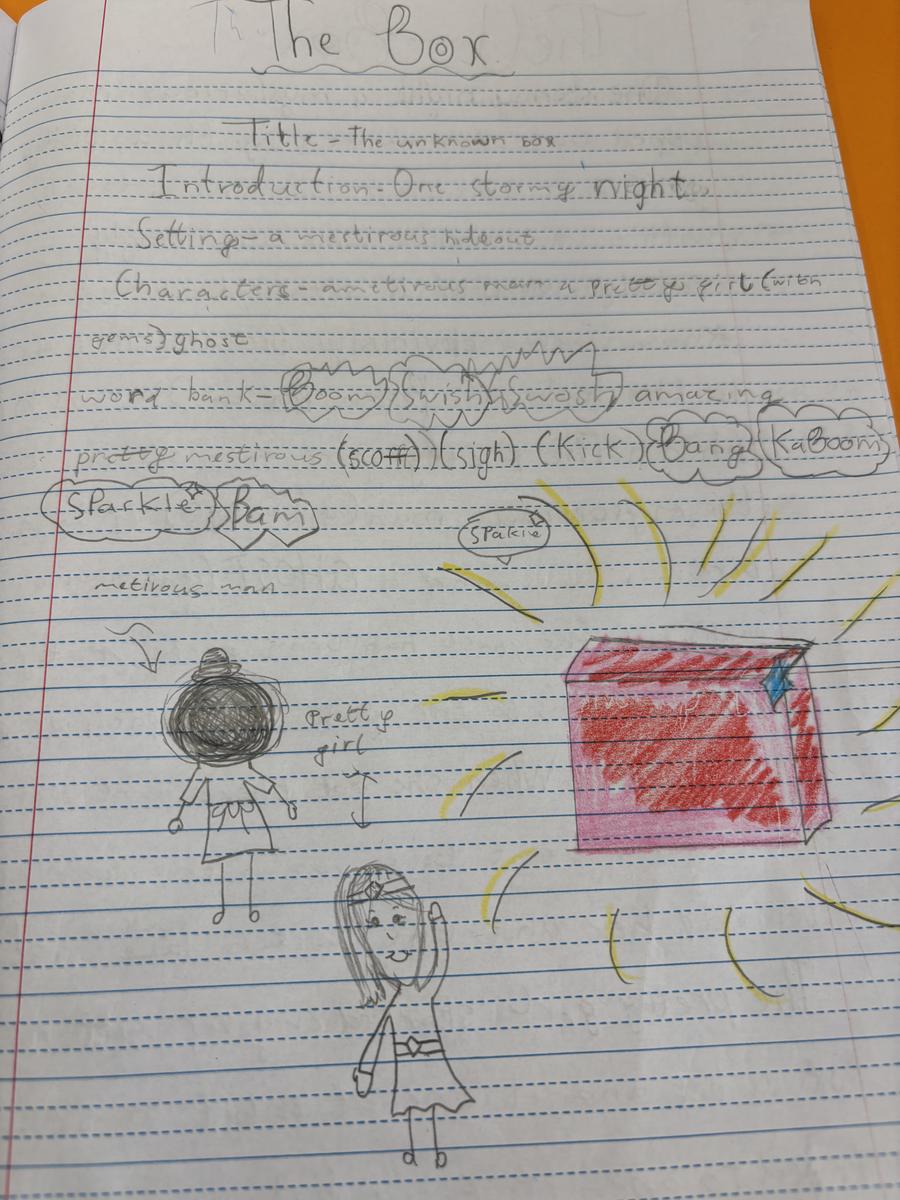 The Box
Title - The unknown box
Introduction - One stormy night
Setting - a mestirous hideout
Characters - a metirous man a pretty girl (with
gems) ghost
word bank - Boom Swish Swosh amazing
pretty mestirous (scoff) (sigh) (Kick) Bang KaBoom
Sparkle Bam
Spakle
metirous man
Pretty
girl